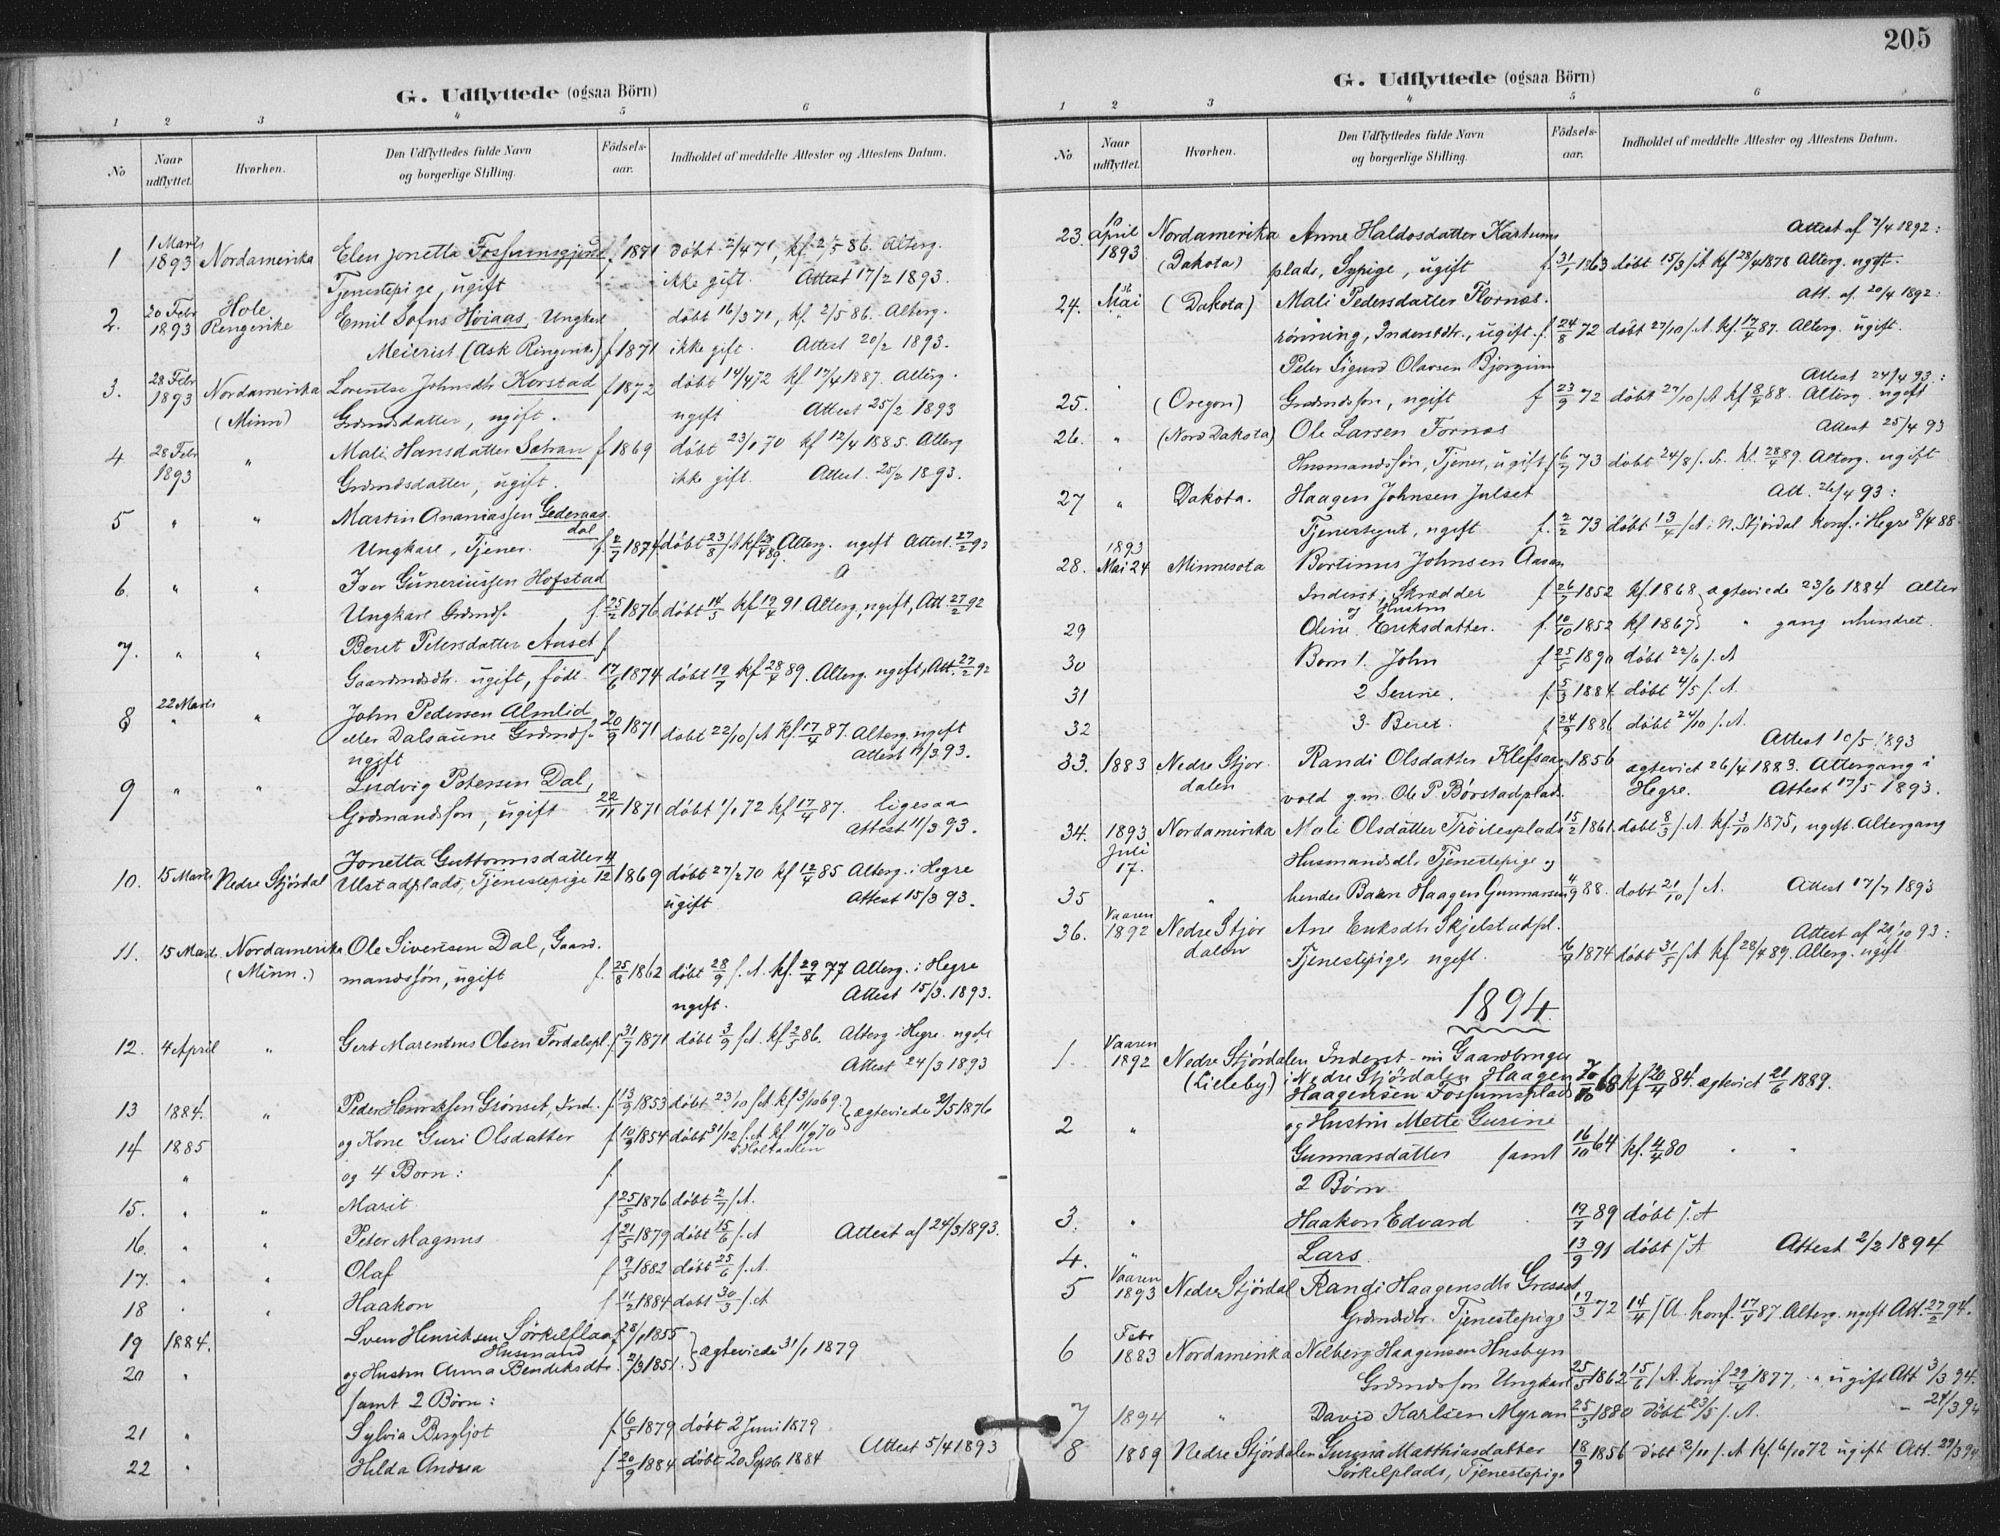 205
G. Udflyttede (ogsaa Börn)
1 2 3 4 5 6
No
Naar udflyttet.
Hvorhen.
Den Udflyttedes fulde Navn og borgerlige Stilling.
Födsels-aar.
Indholdet af meddelte Attester og Attestens Datum.
1 1 Marts 1893 Nordamerika Elen Jonetta f. 1871 døbt 2/4 71, kf. 2/5 86. Alterg.
Tjenestepige, ugift ikke gift. Attest 17/2 1893.
2. 20 Febr 1893 Hole Ringerike Emil Sofus Høiaas, Ungkarl døbt 16/3 71, kf. 2/5 86. Alterg.
Meierist (Ask Ringerike) f 1871 ikke gift. Attest 20/2 1893.
3. 28 Febr 1893 Nordamerika (Minn) Lorentse Johnsdtr Korstad f 1872 døbt 14/4 72 kf 17/4 1887. Alterg.
Grdmdsdatter, ugift. ugift Attest 25/2 1893
4 28 Febr 1893 " Mali Hansdatter Sætran f 1869 døbt 23/1 70 kf 12/4 1885. Alterg
Grdmdsdatter, ugift. ikke gift. Attest. 25/2 1893.
5 " " Martin Ananiassen Gederaas
dal
Ungkarl, Tjener. f. 2/7 1874 døbt 23/8 s.A. kf. 28/4 89. Alterg. ugift Attest. 27/2 93
6. " " Iver Guneriussen Hofstad
Ungkarl Grdmds. f. 25/2 1876 døbt 14/5 kf 19/4 91 Alterg, ugift, Att. 27/2 92
7. " " Beret Petersdatter Auset f
Gaardmdsdtr. ugift, født 17/6 1874 døbt 19/7 kf 28/4 89. Alterg. ugift, Att. 27/2 92
8 22 Marts " " John Pedersen Almlid
eller Dalsaune Grdmds. 20/9 1871 døbt 22/10 s.A kf. 17/4 87. Alterg. ugift
ugift Attest 11/3 93.
9 " " Ludvig Petersen Dal,
Grdmandssøn, ugift 22/11 1871 døbt 1/1 72 kf 17/4 87. ligesaa
Attest 11/3 93.
10. 15 Marts Nedre Stjørdal Jonetta Guttormsdatter
Ulstadplads, Tjenestepige 4/12 1869 døbt 27/2 70 kf 12/4 85 Alterg. i Hegre
ugift Attest 15/3 93.
11. 15 Marts Nordamerika (Minn.) Ole Sivertsen Dal, Gaard-
mandssøn, ugift f. 25/8 1862 døbt 28/9 s.A. kf. 29/4 77 Alterg. i Hegre
ugift. Attest 15/3. 1893.
12. 4 April " Gert Marentius Olsen Fordalspl. f. 31/7 1871 døbt 3/9 s.A. kf 2/5 86. Alterg i Hegre. ugift
Attest 24/3 1893
13 1884. " Peder Henriksen Grønset, Ind. f. 13/9 1853 døbt 23/10 s.A kf 3/10 69. ægteviede 2/5 1876
14 1885 og Kone Guri Olsdatter f 10/9 1854 døbt 31/12 s.A kf 11/9 70
i Holtaalen
" og 4 Børn: f.
15. " " Marit f 25/5 1876 døbt 2/7 s.A.
16. " " Peter Magnus f 21/5 1879 døbt 15/6 s.A Attest af 24/3 1893.
17. " " Olaf f 9/5 1882 døbt 25/6 s.A.
18 " " Haakon f 11/2 1884 døbt 30/3 s.A
19 1884. Sven Henriksen Sørkilflaa f 28/1 1855
Husmand ægteviede 31/1 1879
20 " og Hustru Anna Bendiksdtr. 2/3 1851.
samt 2 Børn:
21 " Sylvia Bergljot f 6/5 1879 døbt 2 Juni 1879
22 " Hilda Andrea f 20/9 1884 døbt 20 Septb. 1884 Attest 5/4 1893
G. Udflyttede (ogsaa Börn)
1 2 3 4 5 6
No
Naar udflyttet.
Hvorhen.
Den Udflyttedes fulde Navn og borgerlige Stilling.
Födsels-aar.
Indholdet af meddelte Attester og Attestens Datum.
23. 10 April 1893 Nordamerika (Dakota) Anne Haldosdatter Kastums Attest af 7/4 1892:
plads, Sypige, ugift f. 31/1 1863 døbt 15/3 s.A kf 28/4 1878 Alterg. ugift.
24. Mai (Dakota) Mali Pedersdatter Flornæs. Att. af. 20/4 1892:
rønning, Inderstdtr., ugift. f. 24/8 72 døbt 27/10 s.A. kf. 17/4 87. Alterg. ugift.
Peter Sigurd Olavsen Bjørgum Attest 24/4 93.:
25. " (Oregon) Grdmdssøn, ugift f 23/9 72 døbt 27/10 s.A kf 8/4 88. Alterg. ugift
26. " (Nord Dakota) Ole Larsen Fornæs Attest 25/4 93
Husmandssøn, Tjener, ugift f 6/7 73 døbt 24/8 s.A. kf. 28/4 89. Alterg. ugift
27 " Dakota. Haagen Johnsen Julset Att. 26/4 93:
Tjenestegut, ugift f. 2/2 73 døbt 13/4 s.A i N. Stjørdal konf. i Hegre 8/4 88.
28. 1893 Mai 24 Minnesota Bortinus Johnsen Aasan
Inderst, Skrædder f 26/7 1852 kf. 1868 ægteviede 23/6 1884 Alter
og Hustru
29 Oline Eriksdatter. f. 10/10 1852 kf 1867 " gang uhindret.
30 Børn 1. John f 25/5 1890 døbt 22/6 s.A
31 2 Serine. f. 5/3 1884 døbt 4/5 s.A.
32 3. Beret. f. 24/9 1886 døbt 24/10 s.A.
Attest 10/5 1893
33. 1883 Nedre Stjør-
dalen Randi Olsdatter Klefsaas 1856 ægteviet 26/4 1883. Altergang i
vold g.m. Ole P. Børstadplads. Hegre. Attest 17/5 1893.
34. 1893 Juli 17. Nordamerika Mali Olsdatter Trøitesplads 15/2 1861 døbt 8/3 s.A. kf. 3/10 1875, ugift. Altergang
Husmandsdtr. Tjenestepige og
35 " hendes Barn Haagen Gunnarsen 4/9 88. døbt 21/10 s.A. Attest 17/7 1893
36. Vaaren 1892 Nedre Stjør
dalen Ane Eriksdtr Skjelstadpl. Attest af 29/10 93:
Tjenestepige, ugift. 16/4 1874 døbt 31/5 s.A kf 28/4 89. Alterg. ugift
1894.
1. Vaaren 1892 Nedre Stjørdalen (Lilleby) Inderst - nu Gaardbruger
i Nedre Stjørdalen Haagen
Haagensen Fossumsplads 68 kf. 20/4 84. ægteviet 21/6 1889.
2 " og Hustru Mette Gurine
Gunnarsdatter samt 16/10 64 kf. 4/4 80 " "
2 Børn
3. " Haakon Edvard 19/7 89 døbt s.A
4. " Lars. 13/9 91 døbt s.A Attest 2/2 1894
5 Vaaren 1893 Nedre Stjørdal Randi Haagensdtr
Grdmdsdtr. Tjenestepige 19/3 72 14/4 s.A. konf. 17/4 87 Alterg. ugift Att. 27/2 94.
6 Febr 1883 Nordamerika Nelberg Haagensen Husbyn
Grdmdssøn Ungkarl 25/5 1862 15/6 s.A. konf 29/4 1877, " ugift Att 3/3 94.
7 1894 " David Karlsen Myran 25/3 1880 døbt 23/5 s.A. " 27/3 94
8 1889 Nedre Stjørdalen Gurina Matthiasdatter 18/9 1856 døbt 2/11 s.A kf. 6/10 72 ugift Att. 29/3 94
Sørkilplads, Tjenestepige